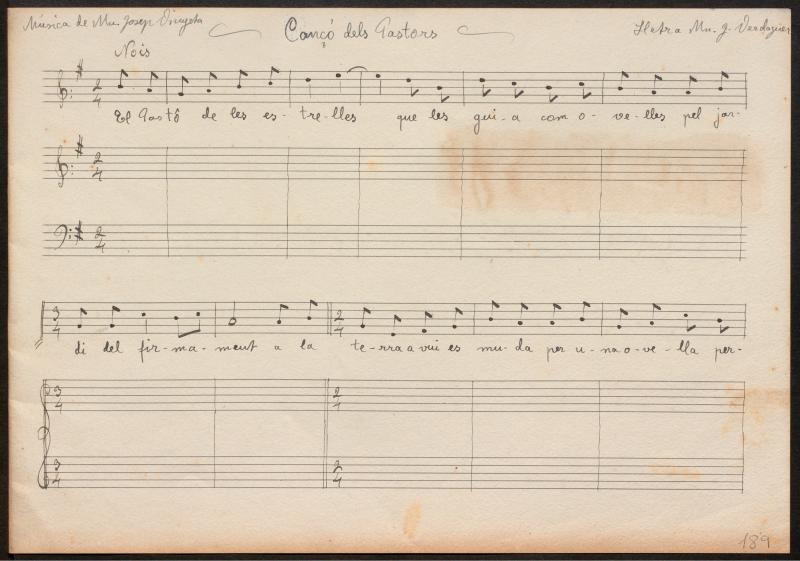 Música de Mn. Josep Vinyeta
Cançó dels Pastors
Lletra Mn. J. Verdaguer
Nois
2 4
El Pastó de les es- tre-lles que les gui-a com o-ve-lles pel jar-
2 4
2 4
3 4 2 4
di del fir-ma-ment a la te-rra a vui es mu-da per u-na o-ve-lla per-
3 4 2 4
3 4 2 4
189